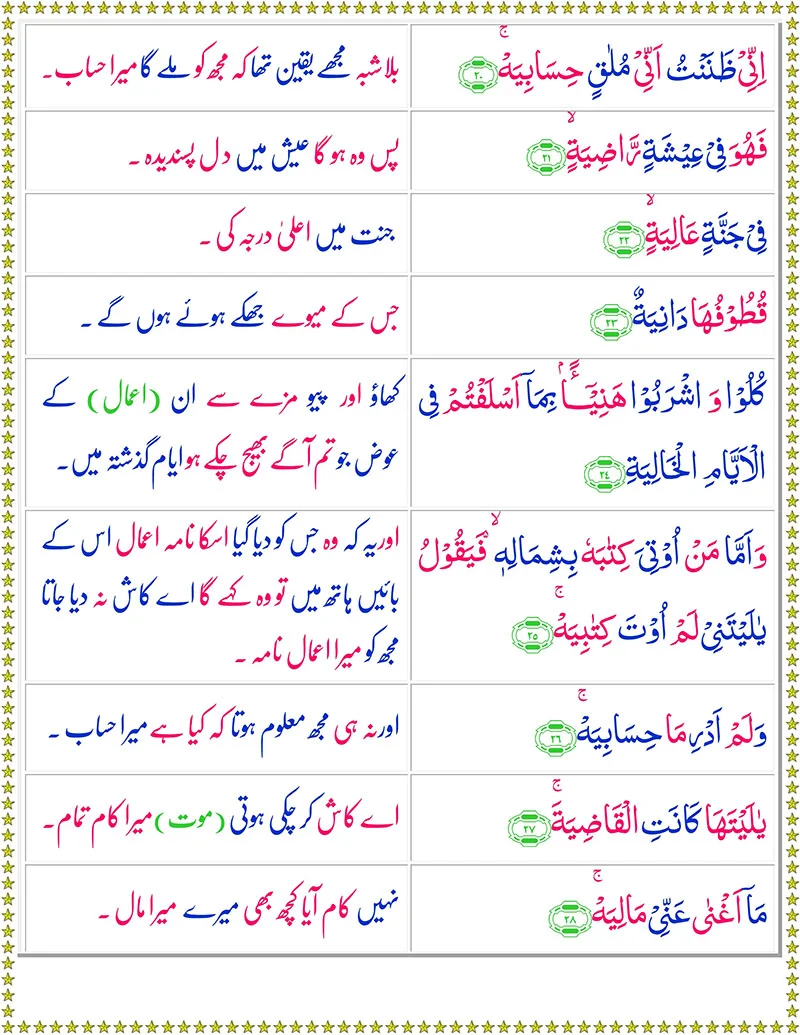 اِنِّیْ ظَنَنْتُ اَنِّیْ مُلٰقٍ حِسَابِیَهْ ۚ ﴿۲۰﴾
بلاشبہ مجھے یقین تھا کہ مجھ کو ملے گا میرا حساب۔
فَهُوَ فِیْ عِیْشَةٍ رَّاضِیَةٍ ۙ ﴿۲۱﴾
پس وہ ہو گا عیش میں دل پسندیدہ ۔
فِیْ جَنَّةٍ عَالِیَةٍ ۙ ﴿۲۲﴾
جنت میں اعلیٰ درجہ کی ۔
قُطُوْفُهَا دَانِیَةٌ ﴿۲۳﴾
جس کے میوے جھکے ہوئے ہوں گے ۔
كُلُوْا وَ اشْرَبُوْا هَنِیْٓـًٔۢا بِمَاۤ اَسْلَفْتُمْ فِی
الْاَیَّامِ الْخَالِیَةِ ﴿۲۴﴾
کھاؤ اور پیو مزے سے ان (اعمال) کے
عوض جو تم آگے بھیج چکے ہو ایام گذشتہ میں۔
وَ اَمَّا مَنْ اُوْتِیَ كِتٰبَهٗ بِشِمَالِهٖ ۙ۬ فَیَقُوْلُ
یٰلَیْتَنِیْ لَمْ اُوْتَ كِتٰبِیَهْ ۚ ﴿۲۵﴾
اور یہ کہ وہ جس کو دیا گیا اسکا نامہ اعمال اس کے
بائیں ہاتھ میں تو وہ کہے گا اے کاش نہ دیا جاتا
مجھ کو میرا اعمال نامہ ۔
وَ لَمْ اَدْرِ مَا حِسَابِیَهْ ۚ ﴿۲۶﴾
اور نہ ہی مجھ معلوم ہوتا کہ کیا ہے میرا حساب ۔
یٰلَیْتَهَا كَانَتِ الْقَاضِیَةَ ۚ ﴿۲۷﴾
اے کاش کر چکی ہوتی (موت) میرا کام تمام۔
مَاۤ اَغْنٰی عَنِّیْ مَالِیَهْ ۚ ﴿۲۸﴾
نہیں کام آیا کچھ بھی میرے میرا مال ۔